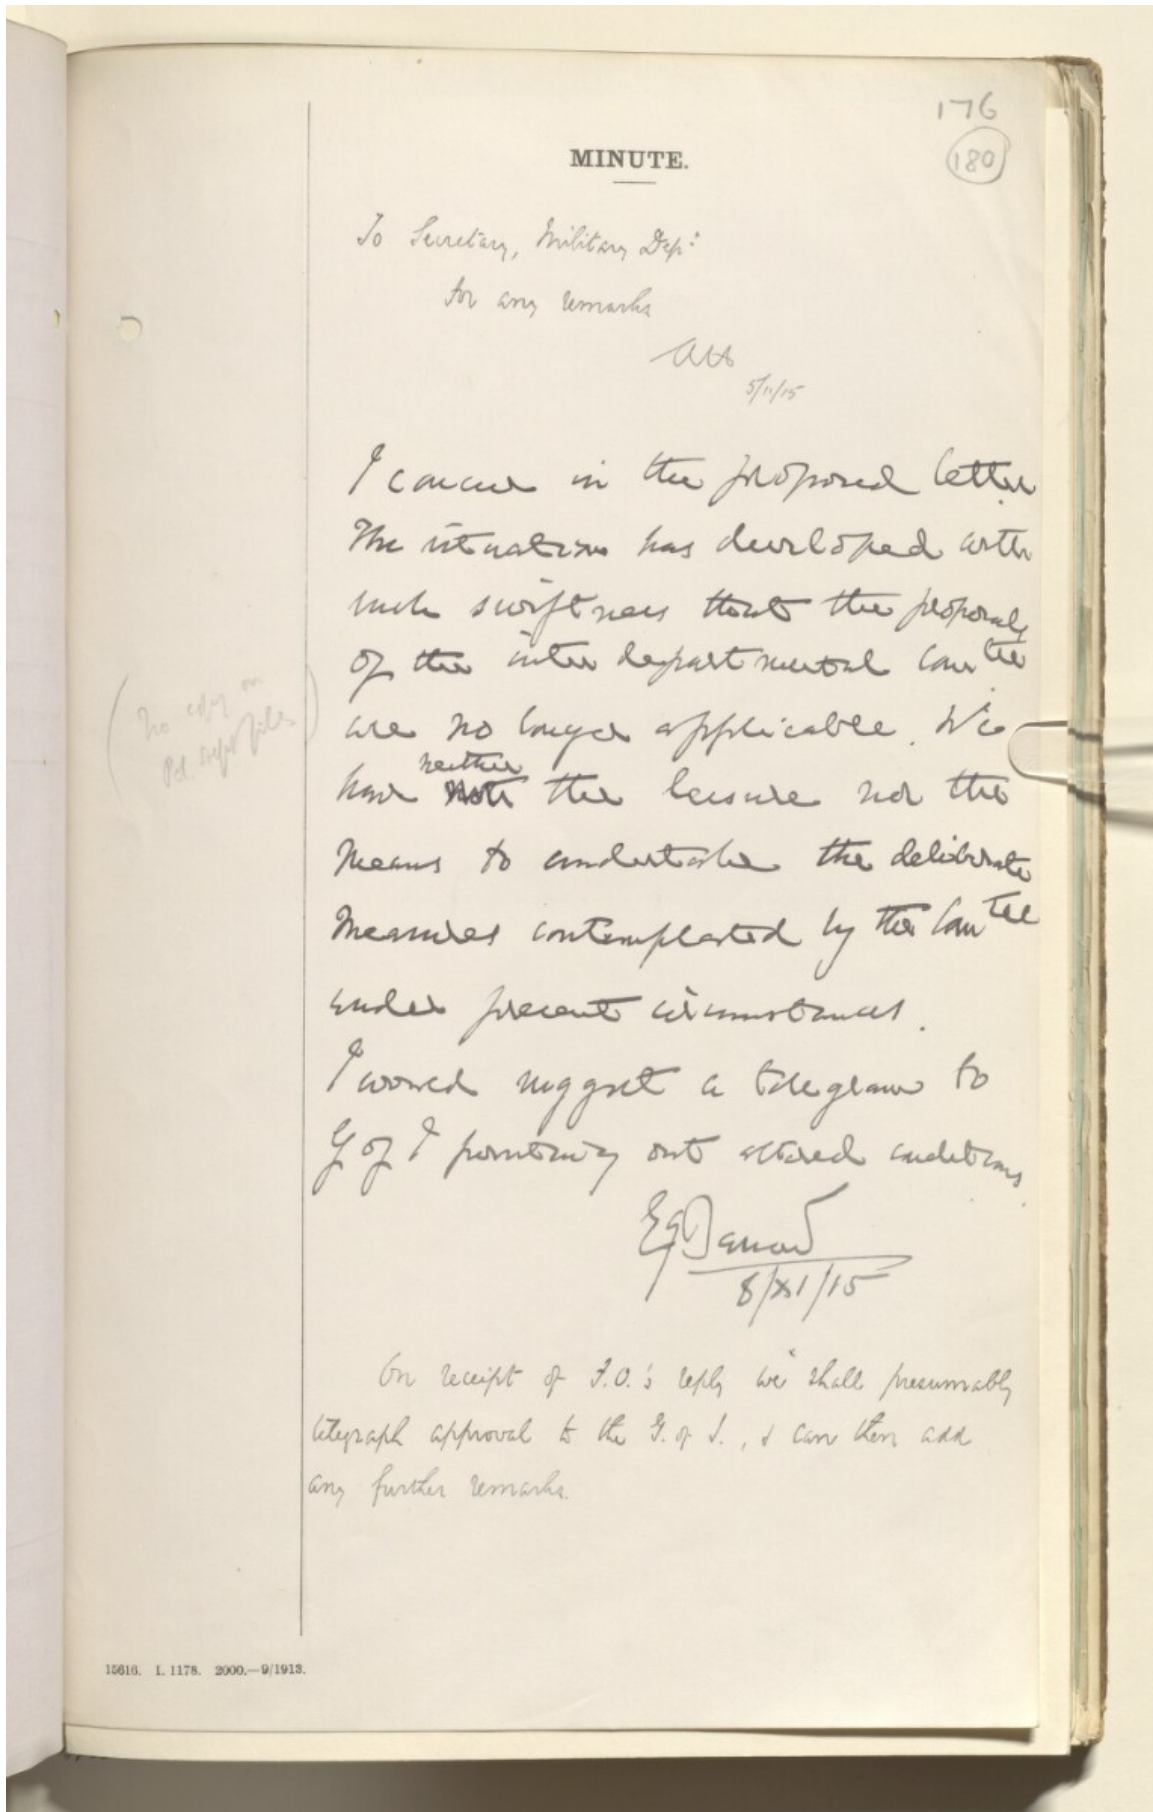 176
180
MINUTE.
To Secretary, Military Dept
for any remarks
5/11/15
I concur in the proposed letter
The situation has developed with
such swiftness that the proposals
of the inter departmental Comtee
are no longer applicable. We
have neither the leisure nor the
means to undertake the deliberate
measures contemplated by the Comtee
under present circumstances.
I would suggest a telegram to
G of I pointing out altered conditions.
8/XI/15
(No copy on
Pol. Dept files)
On receipt of F.O.'s reply we shall presumably
telegraph approval to the G. of I., & can then add
any further remarks.
15616. I. 1178. 2000.—9/1913.